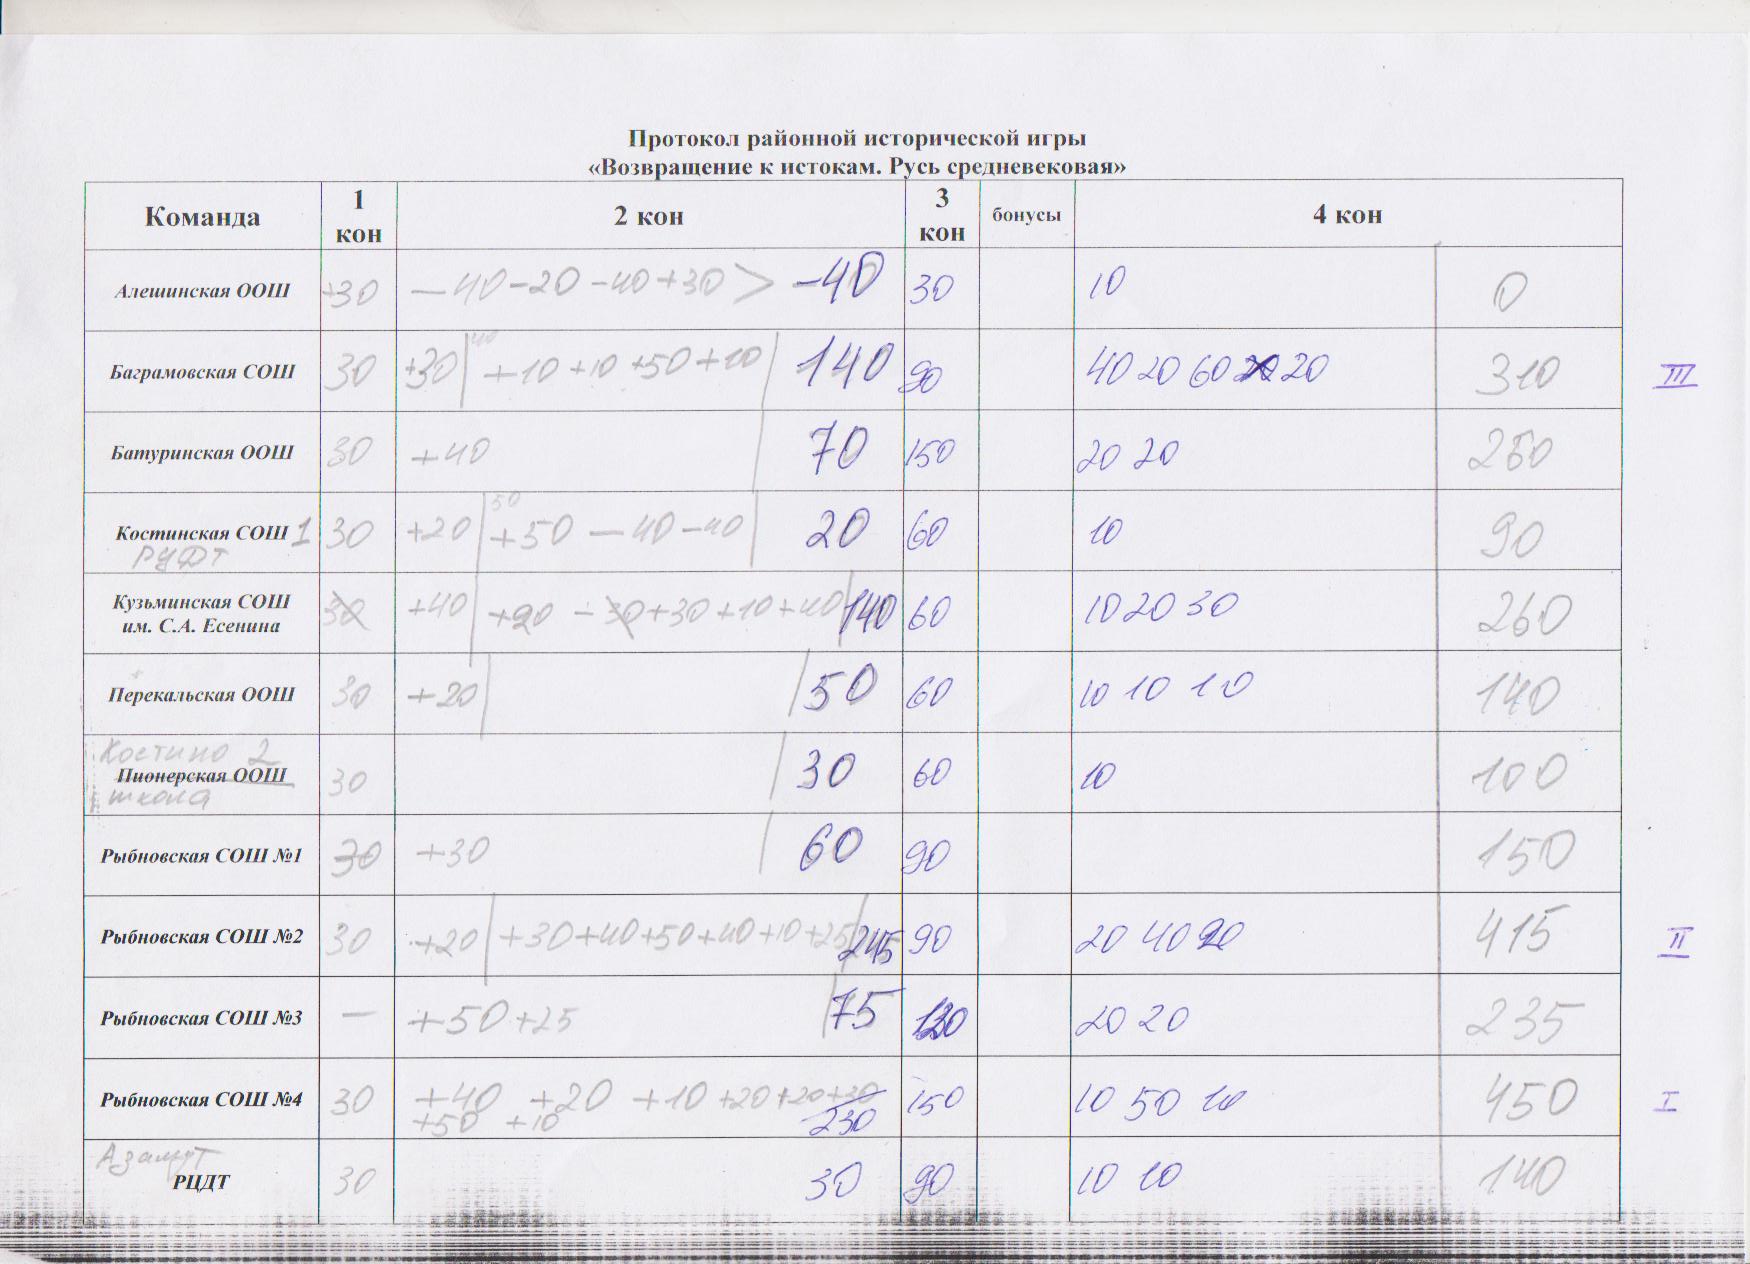 Протокол районной исторической игры
«Возвращение к истокам. Русь средневековая»
Команда 1 кон 2 кон 3 кон бонусы 4 кон
Алешинская ООШ +30 –40–20–40+30 > –40 30 10 0
Баграмовская СОШ 30 +30 | 40 +10+10+50+10 | 140 90 40 20 60 20 310 III
Батуринская ООШ 30 +40 | 70 150 20 20 260
Костинская СОШ 1 30 +20 | 50 +50–40–40 | 20 60 10 90
РУФТ
Кузьминская СОШ 30 +40 | +20 –30+30+10+40 | 140 60 10 20 30 260
им. С.А. Есенина
Перекальская ООШ 30 +20 | 50 60 10 10 10 140
Костино 2
Пионерская ООШ 30 | 30 60 10 100
школа
Рыбновская СОШ №1 30 +30 | 60 90 150
Рыбновская СОШ №2 30 +20 | +30+40+50+40+10+25 | 245 90 20 40 20 415
II
Рыбновская СОШ №3 — +50+25 | 75 120 20 20 235
Рыбновская СОШ №4 30 +40 +20 +10+20+20+30 150 10 50 10 450 I
+50 +10 230
Азимут
РЦДТ 30 30 90 10 10 140